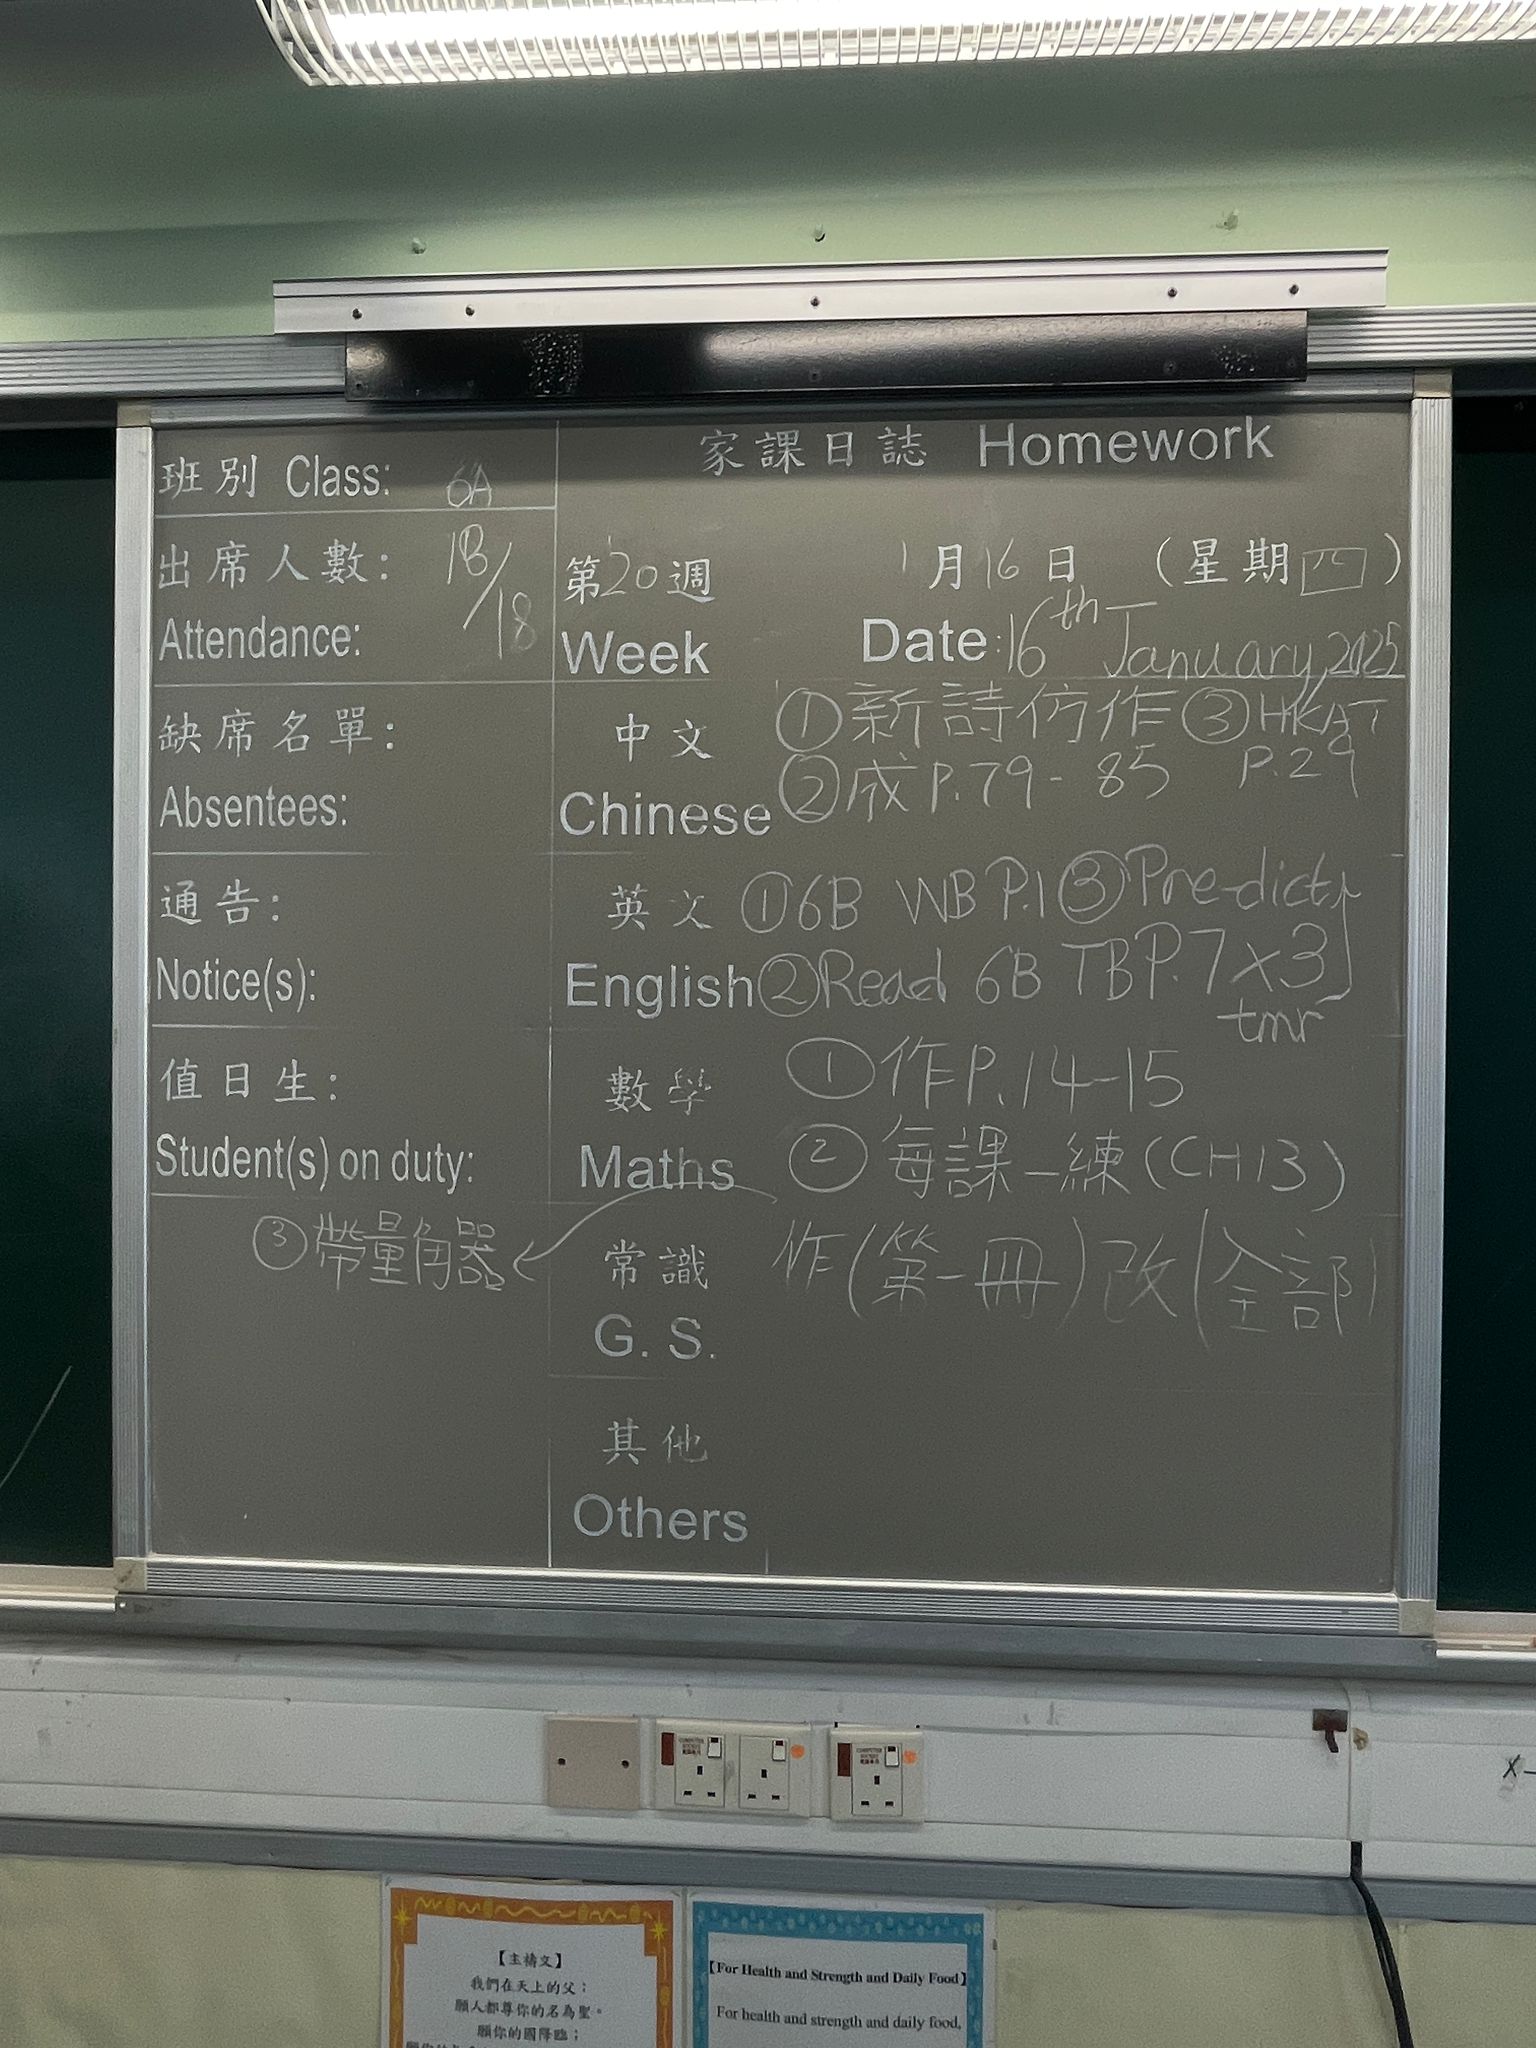 班別 Class: 6A
出席人數: 18/18
Attendance:
缺席名單:
Absentees:
通告:
Notice(s):
值日生:
Student(s) on duty:
③帶量角器
家課日誌 Homework
第20週 1月16日 (星期四)
Week Date: 16th January, 2025
中文 ①新詩仿作 ③HKAT
Chinese ②成P.79-85 P.29
英文 ①6B WB P.1 ③Pre-dict
English ②Read 6B TB P.7 x3
tmr
數學 ①作P.14-15
Maths ②每課一練(CH13)
常識 作(第一冊)改(全部)
G. S.
其他
Others
COMPUTER
COMPUTER
【主禱文】
我們在天上的父:
願人都尊你的名為聖。
願你的國降臨;
【For Health and Strength and Daily Food】
For health and strength and daily food,